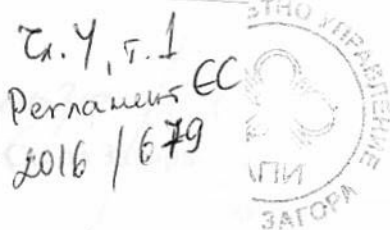 Чл. 4, т. 1
Регламент ЕС
2016 / 679
УПРАВЛЕНИЕ
АПИ
ЗАГОРА